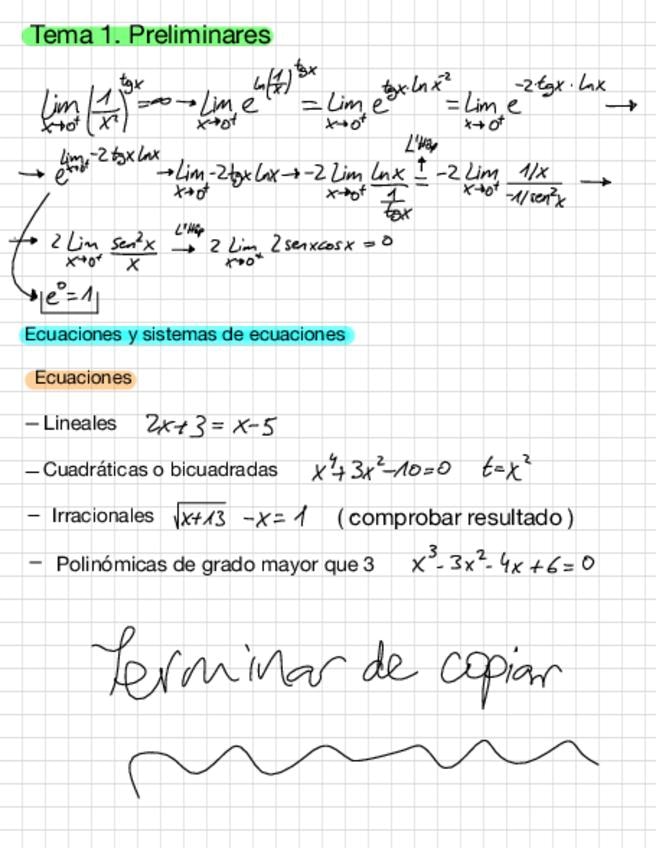 Tema 1. Preliminares
Lim x→0⁺ (1/x²)^tgx = ∞⁰ → Lim x→0⁺ e^ln(1/x²)^tgx = Lim x→0⁺ e^tgx·ln x⁻² = Lim x→0⁺ e^-2·tgx·lnx →
→ e^lim x→0⁺ -2tgxlnx → Lim x→0⁺ -2tgxlnx → -2 Lim x→0⁺ lnx/(1/tgx) = L'Hôp -2 Lim x→0⁺ (1/x)/(-1/sen²x) →
→ 2 Lim x→0⁺ sen²x/x L'Hôp → 2 Lim x→0⁺ 2senxcosx = 0
e⁰=1
Ecuaciones y sistemas de ecuaciones
Ecuaciones
– Lineales 2x+3=x-5
– Cuadráticas o bicuadradas x⁴+3x²-10=0 t=x²
– Irracionales √x+13 -x=1 (comprobar resultado)
– Polinómicas de grado mayor que 3 x³-3x²-4x+6=0
Terminar de copiar